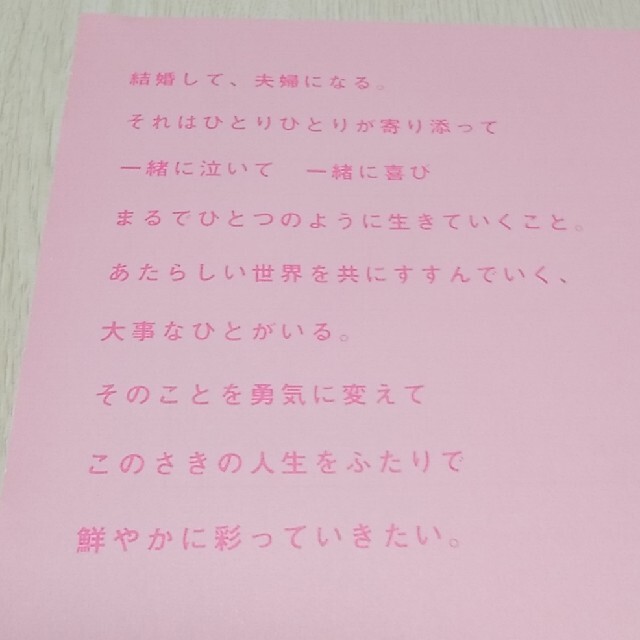 結婚して、夫婦になる。
それはひとりひとりが寄り添って
一緒に泣いて　一緒に喜び
まるでひとつのように生きていくこと。
あたらしい世界を共にすすんでいく、
大事なひとがいる。
そのことを勇気に変えて
このさきの人生をふたりで
鮮やかに彩っていきたい。